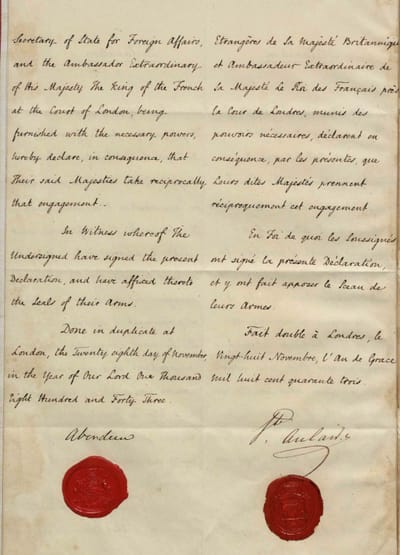 Secretary of State for Foreign Affairs,
and the Ambassador Extraordinary
of His Majesty The King of the French
at the Court of London, being
furnished with the necessary powers,
hereby declare, in consequence, that
Their said Majesties take reciprocally
that engagement.
In Witness whereof The
Undersigned have signed the present
Declaration, and have affixed thereto
the Seals of their Arms.
Done in duplicate at
London, the Twenty eighth day of November,
in the Year of Our Lord One Thousand
Eight Hundred and Forty Three.
Aberdeen
Etrangères de Sa Majesté Britannique
et Ambassadeur Extraordinaire de
Sa Majesté Le Roi des Français près
la Cour de Londres, munis des
pouvoirs nécessaires, déclarent en
conséquence, par les présentes, que
Leurs dites Majestés prennent
réciproquement cet engagement
En Foi de quoi les Soussignés
ont signé la présente Déclaration,
et y ont fait apposer le Sceau de
leurs Armes.
Fait double à Londres, le
Vingt-huit Novembre, l'An de Grace
mil huit cent quarante trois.
St. Aulaire